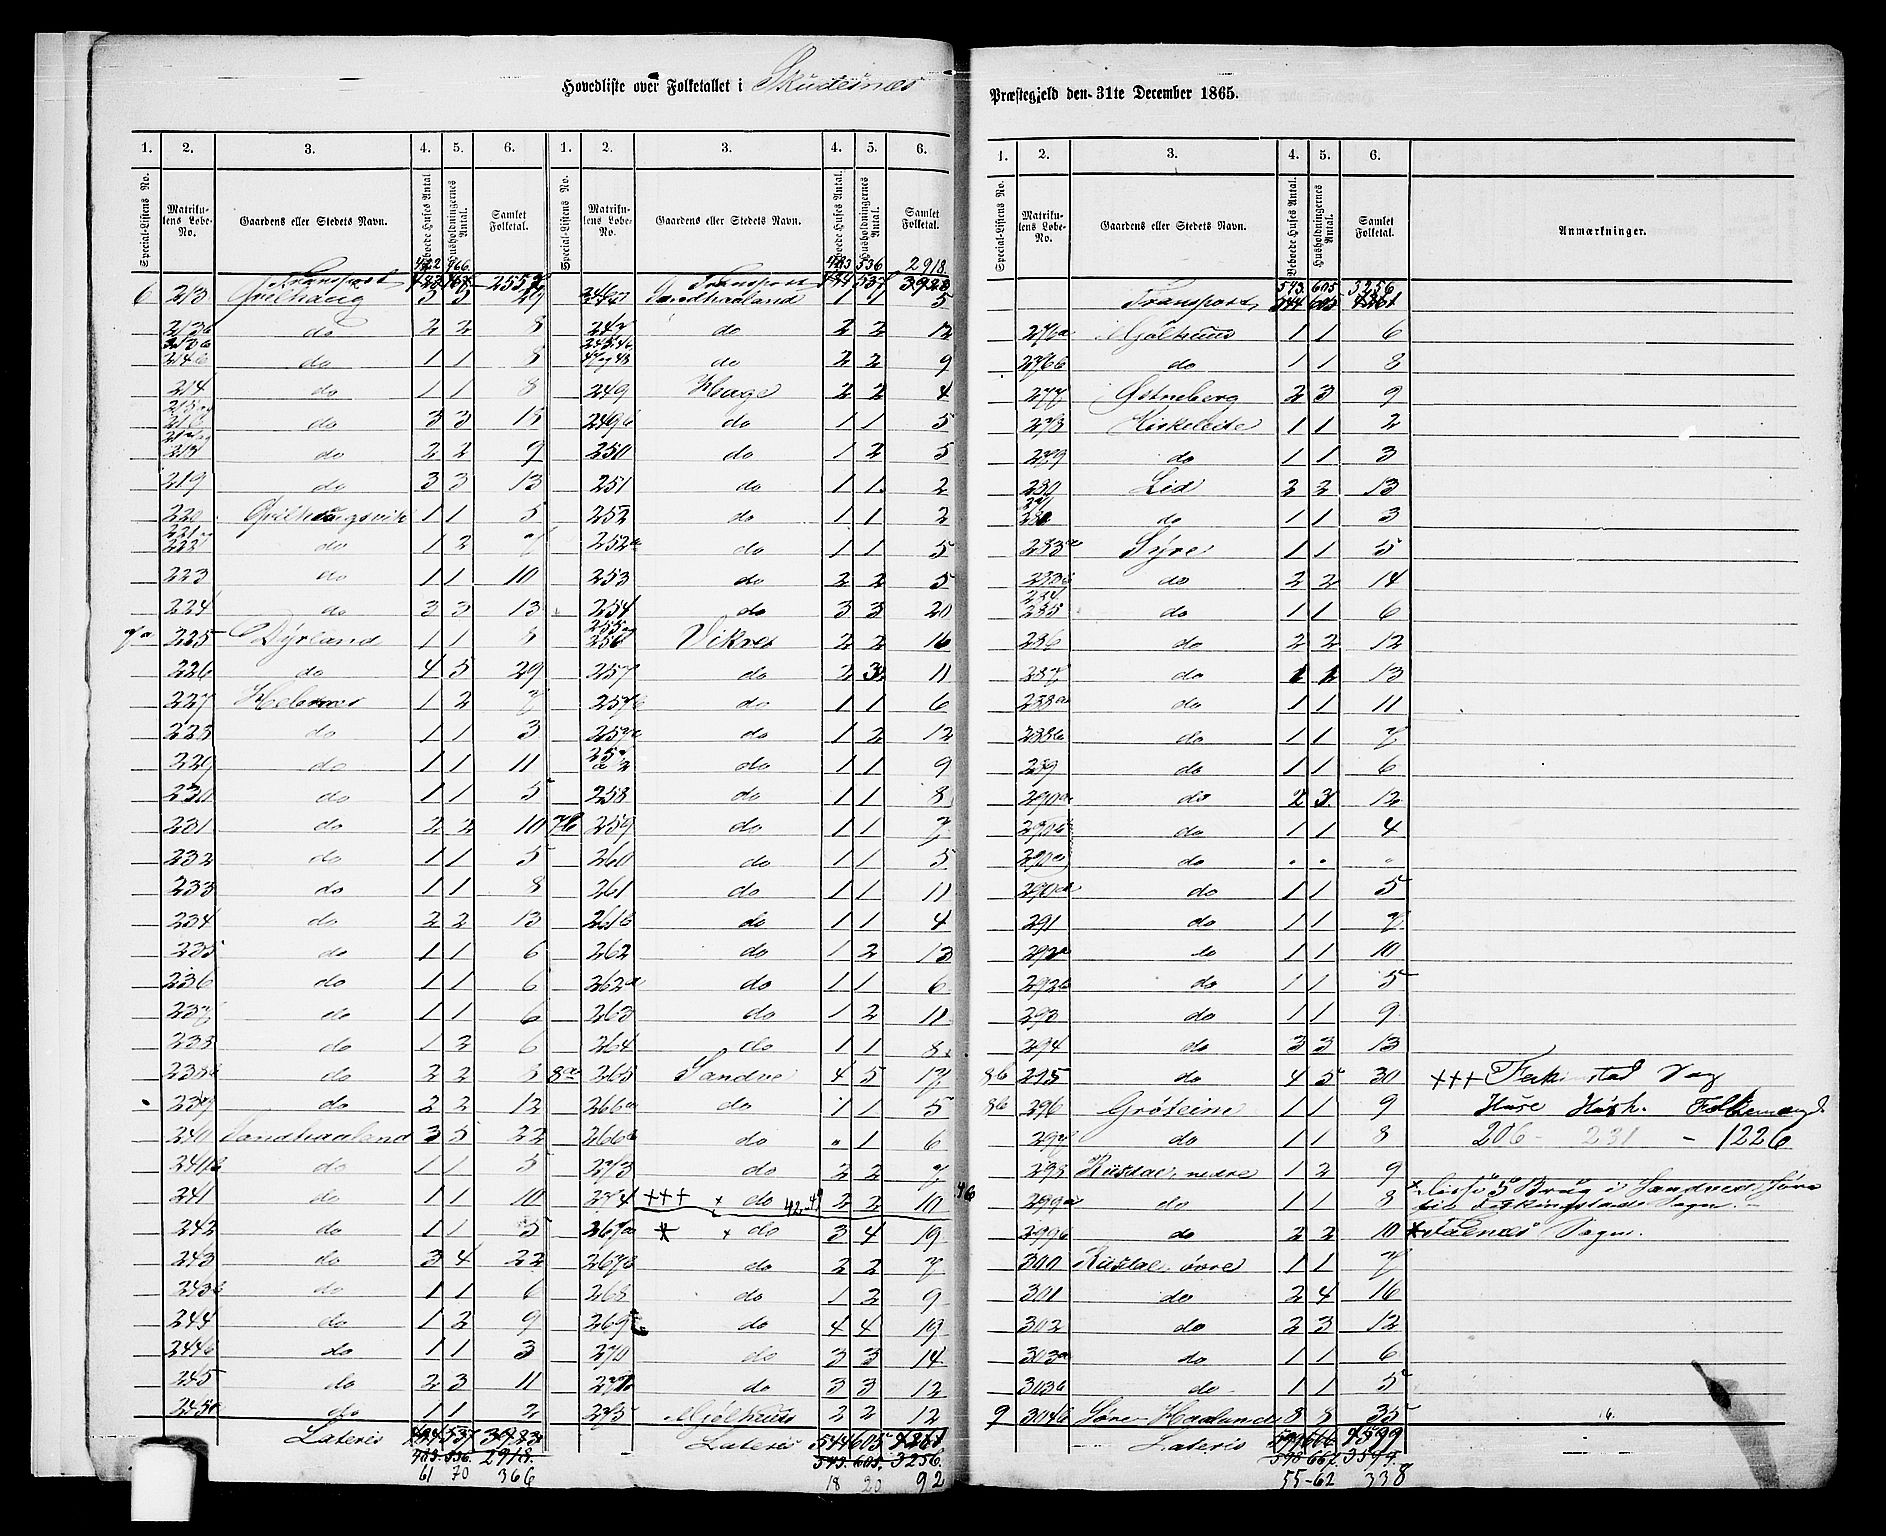 Hovedliste over Folketallet i Skudesnæs
Præstegjeld den 31te December 1865.
1. 2. 3. 4. 5. 6. 1. 2. 3. 4. 5. 6.
Special-Listens No. Matrikulens Løbe-No. Gaardens eller Stedets Navn. Beboede Huses Antal. Husholdningernes Antal. Samlet Folketal. Special-Listens No. Matrikulens Løbe-No. Gaardens eller Stedets Navn. Beboede Huses Antal. Husholdningernes Antal. Samlet Folketal.
Transport
6 213
do 2 2 8
do 1 1 5
214 do 1 1 8
do 3 3 15
do 2 2 9
219 do 3 3 13
220 1 1 5
do 1 2 7
223 do 1 1 10
224 do 3 3 13
7a 225 Dyrland 1 1 8
226 do 4 5 29
227 1 2 7
228 do 1 1 3
229 do 1 1 11
230 do 1 1 5
231 do 2 2 10
232 do 1 1 5
233 do 1 1 8
234 do 2 2 13
235 do 1 1 6
236 do 1 1 6
237 do 1 1 6
238 do 1 2 6
238b do 2 2 8
239 do 2 2 12
240 Sandhaaland 3 5 22
241b do 1 1 5
241 do 1 1 10
242 do 1 1 5
243 do 3 4 22
243b do 1 1 6
244 do 1 2 9
244b do 1 1 3
245 do 2 3 11
do 1 1 2
Lateris
2918.
61 70 366
536 2918.
Transport
Sandhaaland 1 1 5
247 do 2 2 12
do 2 2 9
249 Hage 2 2 4
249b do 1 1 5
250 do 1 2 5
251 do 1 1 2
252 do 1 1 2
252a do 1 1 5
253 do 2 2 5
254 do 3 3 20
255 og 256 Vikre 2 2 16
257 do 2 3 11
257b do 1 1 6
do 1 2 12
do 1 1 9
258 do 1 1 8
7b 259 do 1 1 7
260 do 1 1 5
261 do 1 1 11
261b do 1 1 4
262 do 1 2 13
262a do 1 1 6
263 do 1 2 11
264 do 1 1 8
8a 265 Sandve 4 5 17
266a do 1 1 5
266b do " 1 6
273 do 2 2 7
274 +++ x do 2 2 10
267a x do 3 4 19
267b do 2 2 7
268 do 1 2 9
269 do 4 4 19
270 do 3 3 14
do 3 3 12
275 Mjølhuus 2 2 12
Lateris 544 605
543. 605. 3256.
18 20 92
1. 2. 3. 4. 5. 6.
Special-Listens No. Matrikulens Løbe-No. Gaardens eller Stedets Navn. Beboede Huses Antal. Husholdningernes Antal. Samlet Folketal. Anmærkninger.
543. 605 3256
Transport
276a Mjølhuus 1 1 6
276b do 1 1 8
277 Østreberg 2 3 9
278 Kirkeleite 1 1 2
279 do 1 1 3
280 Lid 2 2 13
do 1 1 3
283a Syre 1 1 5
283b do 2 2 14
284 285 do 1 1 6
286 do 2 2 12
287 do 13
288a do 1 1 11
288b do 1 1 7
289 do 1 1 6
290a do 2 3 12
290b do 1 1 4
do . . "
do 1 1 5
291 do 1 1 7
292a do 1 1 10
292b do 1 1 5
293 do 1 1 9
294 do 3 3 13
8b 295 do 4 5 30 +++ Ferkinstad Sog
8b 296 Grøteine 1 1 9 Huse Hush. Folkemængd.
297 do 1 1 8 206 - 231 - 1226
298 Risdal, nedre 1 2 9
299a do 1 1 8 x disse 5 Brug i Sandve
299b do 2 2 10 Sogn.
300 Risdal, øvre 1 1 7
301 do 2 4 16
302 do 2 3 12
303a do 1 1 6
303b do 1 1 5
9 304b Søre Haaland 8 8 35
Lateris
55-62 338
16.